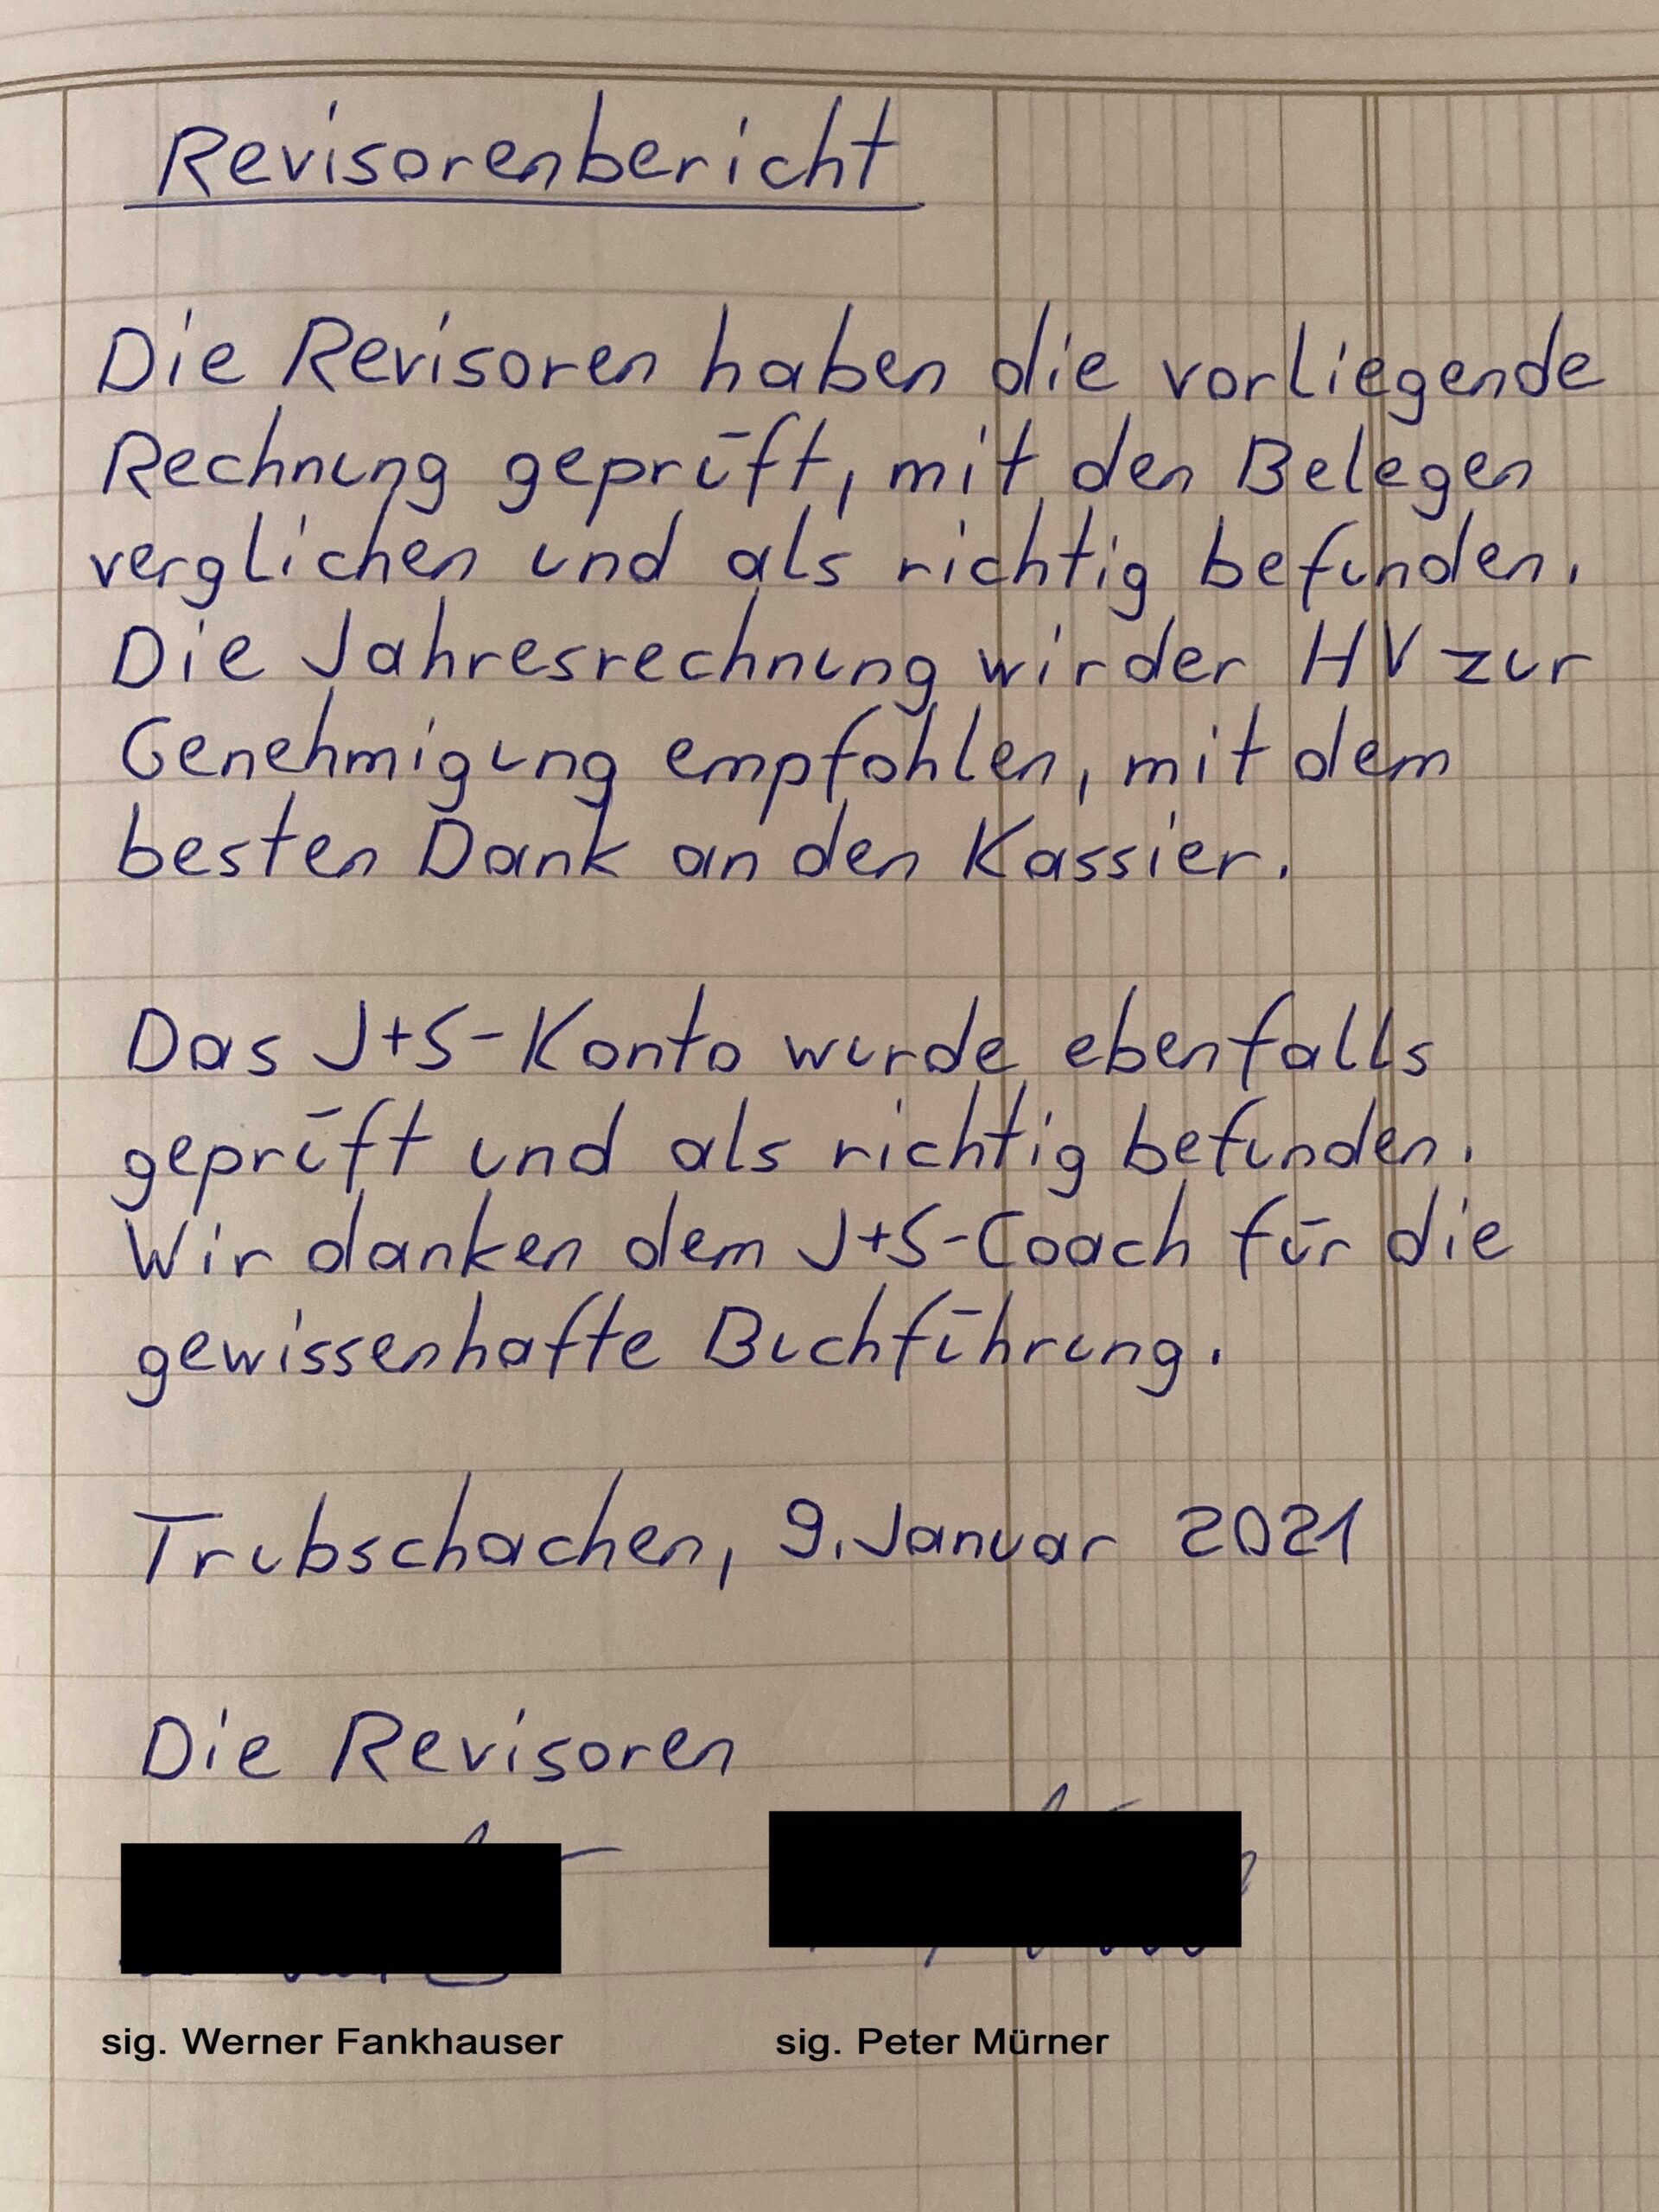 Revisorenbericht
Die Revisoren haben die vorliegende
Rechnung geprüft, mit den Belegen
verglichen und als richtig befunden.
Die Jahresrechnung wir der HV zur
Genehmigung empfohlen, mit dem
besten Dank an den Kassier.
Das J+S-Konto wurde ebenfalls
geprüft und als richtig befunden.
Wir danken dem J+S-Coach für die
gewissenhafte Buchführung.
Trubschachen, 9. Januar 2021
Die Revisoren
sig. Werner Fankhauser sig. Peter Mürner